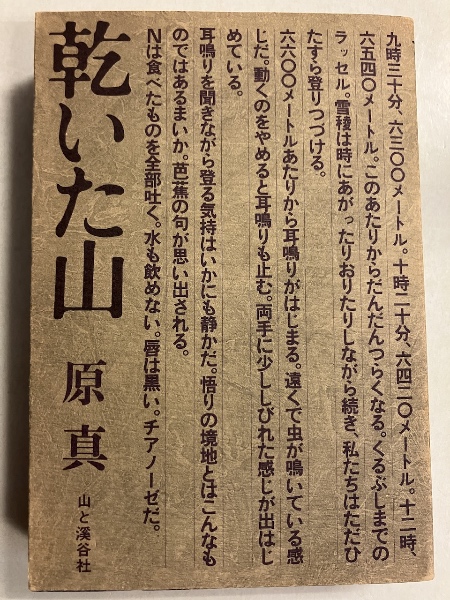 九時三十分、六三〇〇メートル。十時二十分、六四二〇メートル。十二時、
六五四〇メートル。このあたりからだんだんつらくなる。くるぶしまでの
ラッセル。雪稜は時にあがったりおりたりしながら続き、私たちはただひ
たすら登りつづける。
六六〇〇メートルあたりから耳鳴りがはじまる。遠くで虫が鳴いている感
じだ。動くのをやめると耳鳴りも止む。両手に少ししびれた感じが出はじ
めている。
耳鳴りを聞きながら登る気持はいかにも静かだ。悟りの境地とはこんなも
のではあるまいか。芭蕉の句が思い出される。
Nは食べたものを全部吐く。水も飲めない。唇は黒い。チアノーゼだ。
乾いた山
原真
山と溪谷社